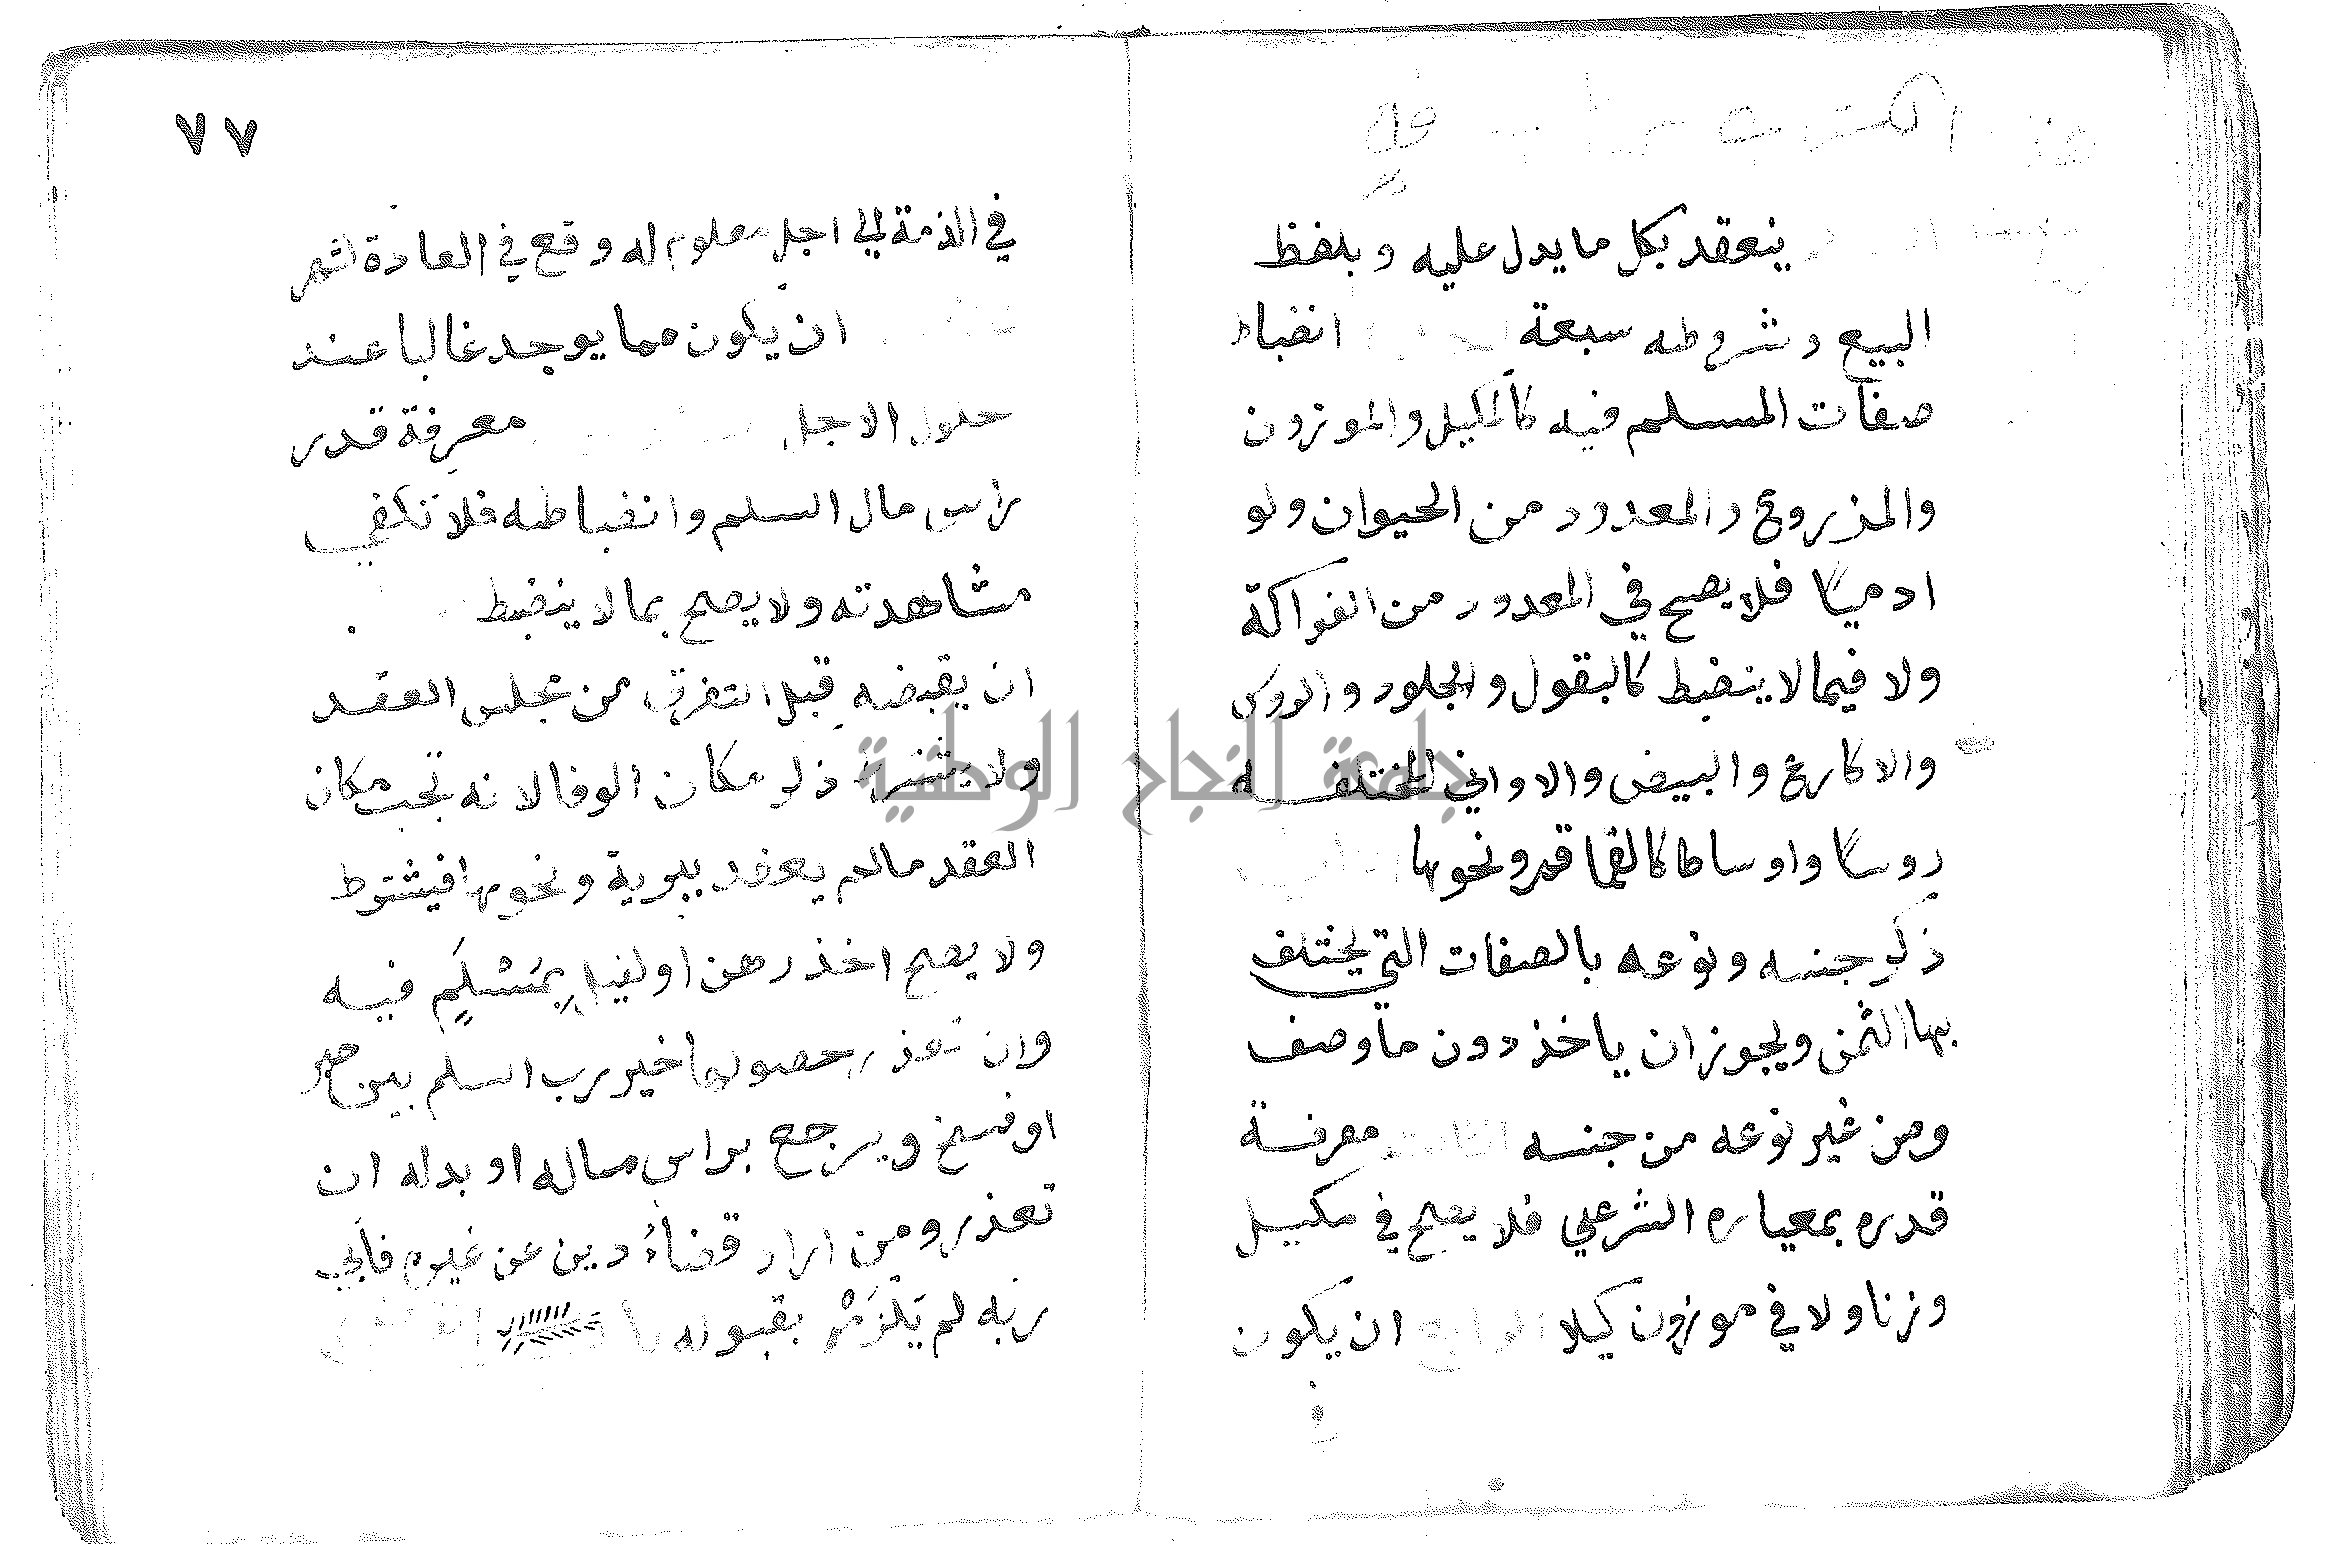 ينعقد بكل ما يدل عليه وبلفظ
البيع وشروطه سبعة انضباط
صفات المسلم فيه كالمكيل والموزون
والمذروع والمعدود من الحيوان ولو
ادميا فلا يصح في المعدود من الفواكة
ولا فيما لا ينضبط كالبقول والجلود والروس
والاكارع والبيض والاواني المختلفه
روسا واوساطا كالقماقم ونحوها
ذكر جنسه ونوعه بالصفات التي يختلف
بها الثمن ويجوز ان ياخذ دون ما وصف
ومن غير نوعه من جنسه معرفة
قدره بمعياره الشرعي فلا يصح في مكيل
وزنا ولا في موزون كيلا ان يكون
٧٧
في الذمة الى اجل معلوم له وقع في العادة كشهر
ان يكون مما يوجد غالبا عند
حلول الاجل معرفة قدر
راس مال السلم وانضباطه فلا تكفي
مشاهدته ولا يصح بما لا ينضبط
ان يقبضه قبل التفرق من مجلس العقد
ولا يشترط ذكر مكان الوفا لانه يجب مكان
العقد مالم يعقد ببرية ونحوها فيشترط
ولا يصح اخذ رهن او كفيل بمسلم فيه
وان تعذر حصوله خير رب السلم بين صبر
او فسخ ويرجع براس ماله او بدله ان
تعذر ومن اراد قضاء دين عن غيره فابى
ربه لم يلزم بقبوله
جامعة النجاح الوطنية